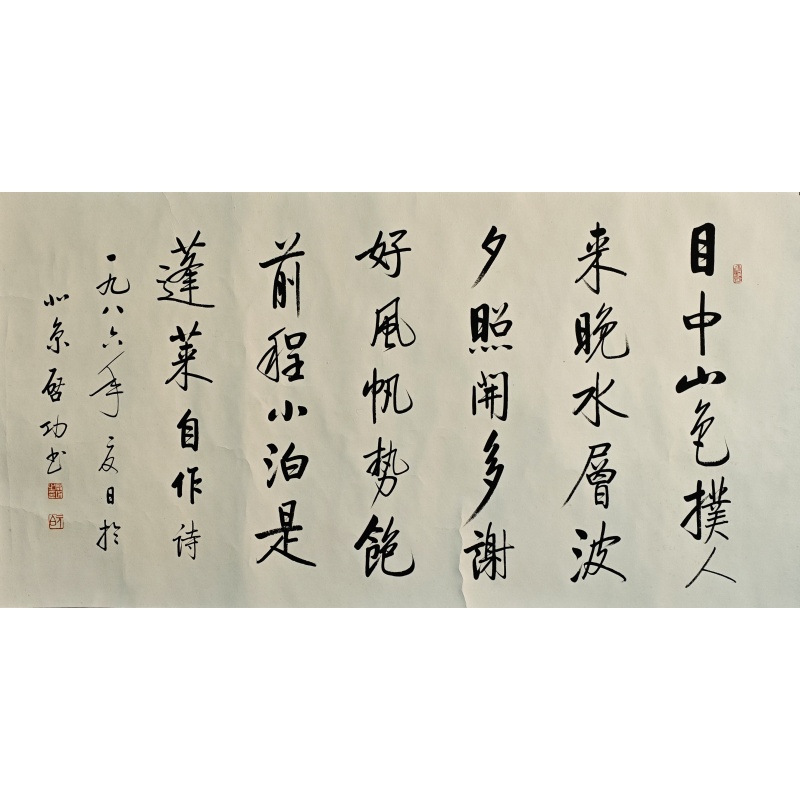 目中山色撲人
来晚水層波
夕照開多謝
好風帆勢飽
前程小泊是
蓬莱自作诗
一九八六年夏日於
北京啓功书